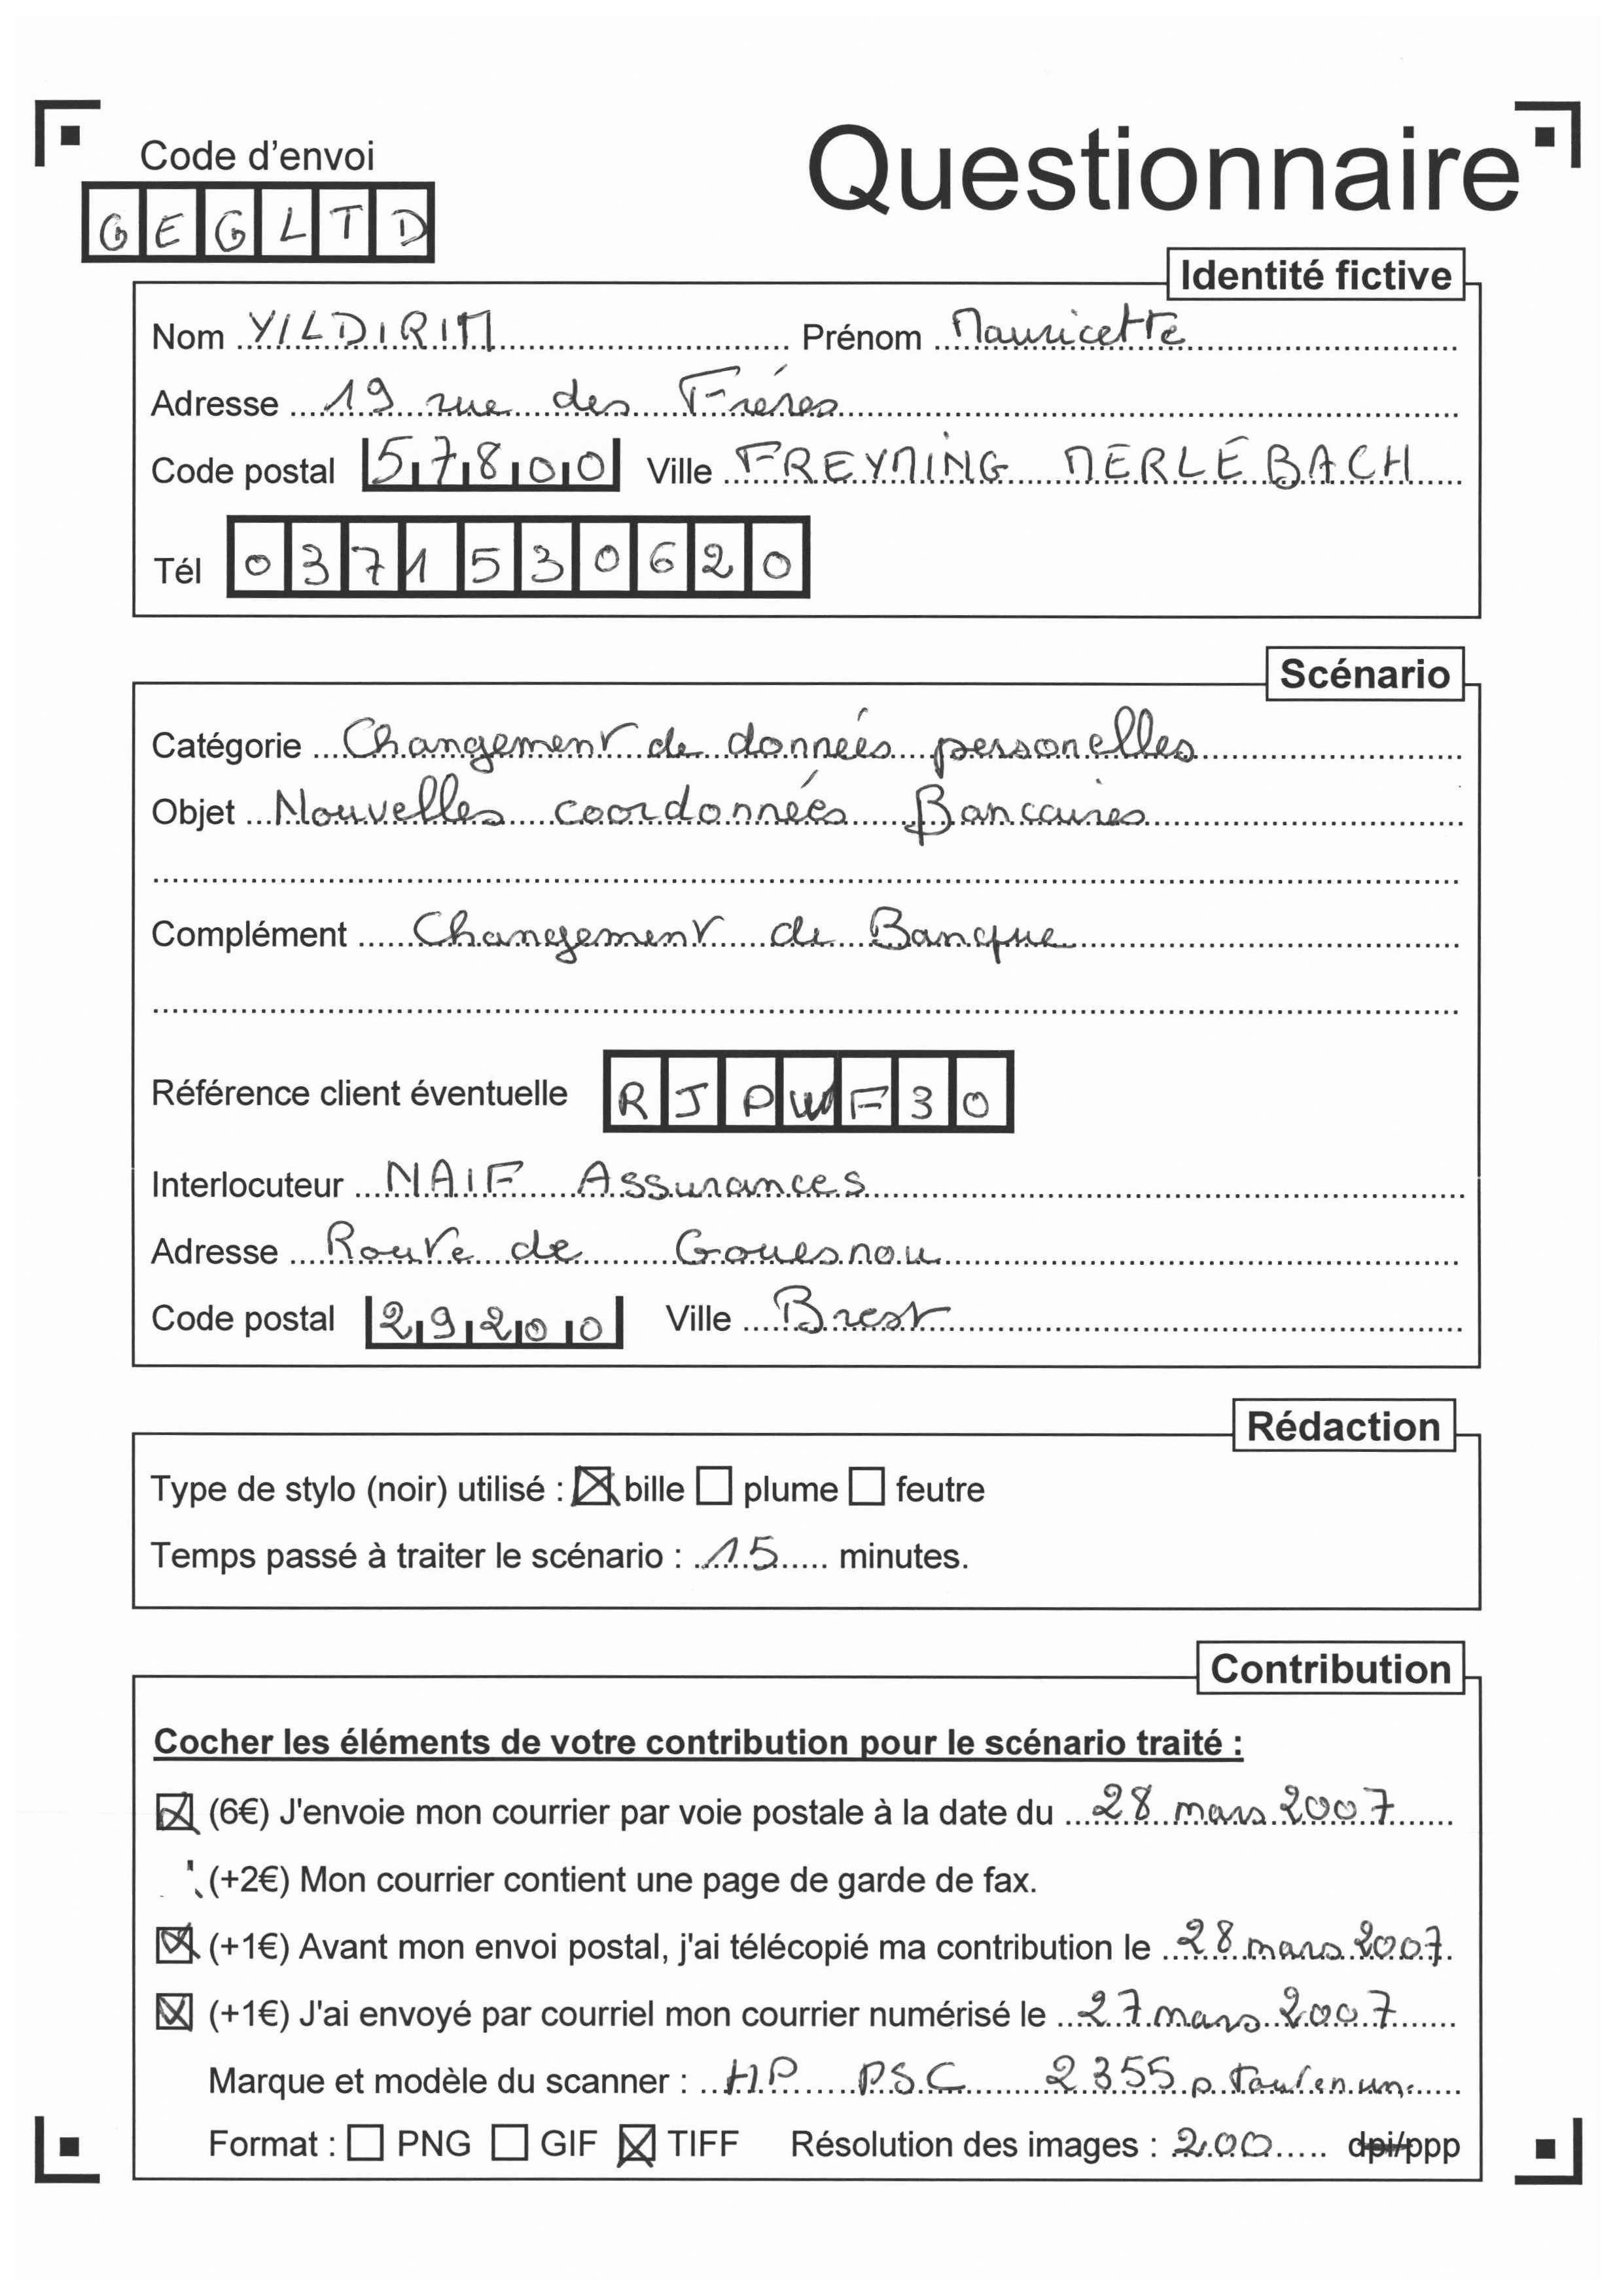 Code d'envoi
Questionnaire
GEGLTD
Identité fictive
Nom YILDIRIM Prénom Mauricette
Adresse 19 rue des Fréres
Code postal 57800 Ville FREYMING MERLÉBACH
Tél 0371530620
Scénario
Catégorie Changement de données personelles
Objet Nouvelles coordonnées Bancaires
Complément Changement de Banque
Référence client éventuelle RJPWF30
Interlocuteur MAIF Assurances
Adresse Route de Gouesnou
Code postal 29200 Ville Brest
Rédaction
Type de stylo (noir) utilisé : bille plume feutre
Temps passé à traiter le scénario : 15 minutes.
Contribution
Cocher les éléments de votre contribution pour le scénario traité :
(6€) J'envoie mon courrier par voie postale à la date du 28 mars 2007
(+2€) Mon courrier contient une page de garde de fax.
(+1€) Avant mon envoi postal, j'ai télécopié ma contribution le 28 mars 2007.
(+1€) J'ai envoyé par courriel mon courrier numérisé le 27 mars 2007
Marque et modèle du scanner : HP PSC 2355 p Tout en un
Format : PNG GIF TIFF Résolution des images : 200 dpi/ppp